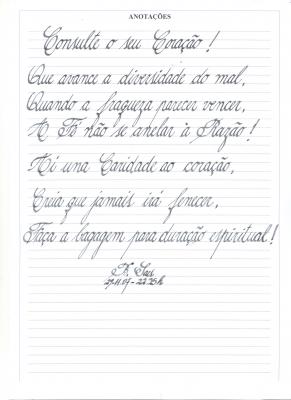 ANOTAÇÕES
Consulte o seu Coração!
Que avance a diversidade do mal,
Quando a fraqueza parecer vencer,
A Fé não se anelar à Razão!
Aí una Caridade ao coração,
Creia que jamais irá fenecer,
Faça a bagagem para duração espiritual!
27.11.07 - 22:25h